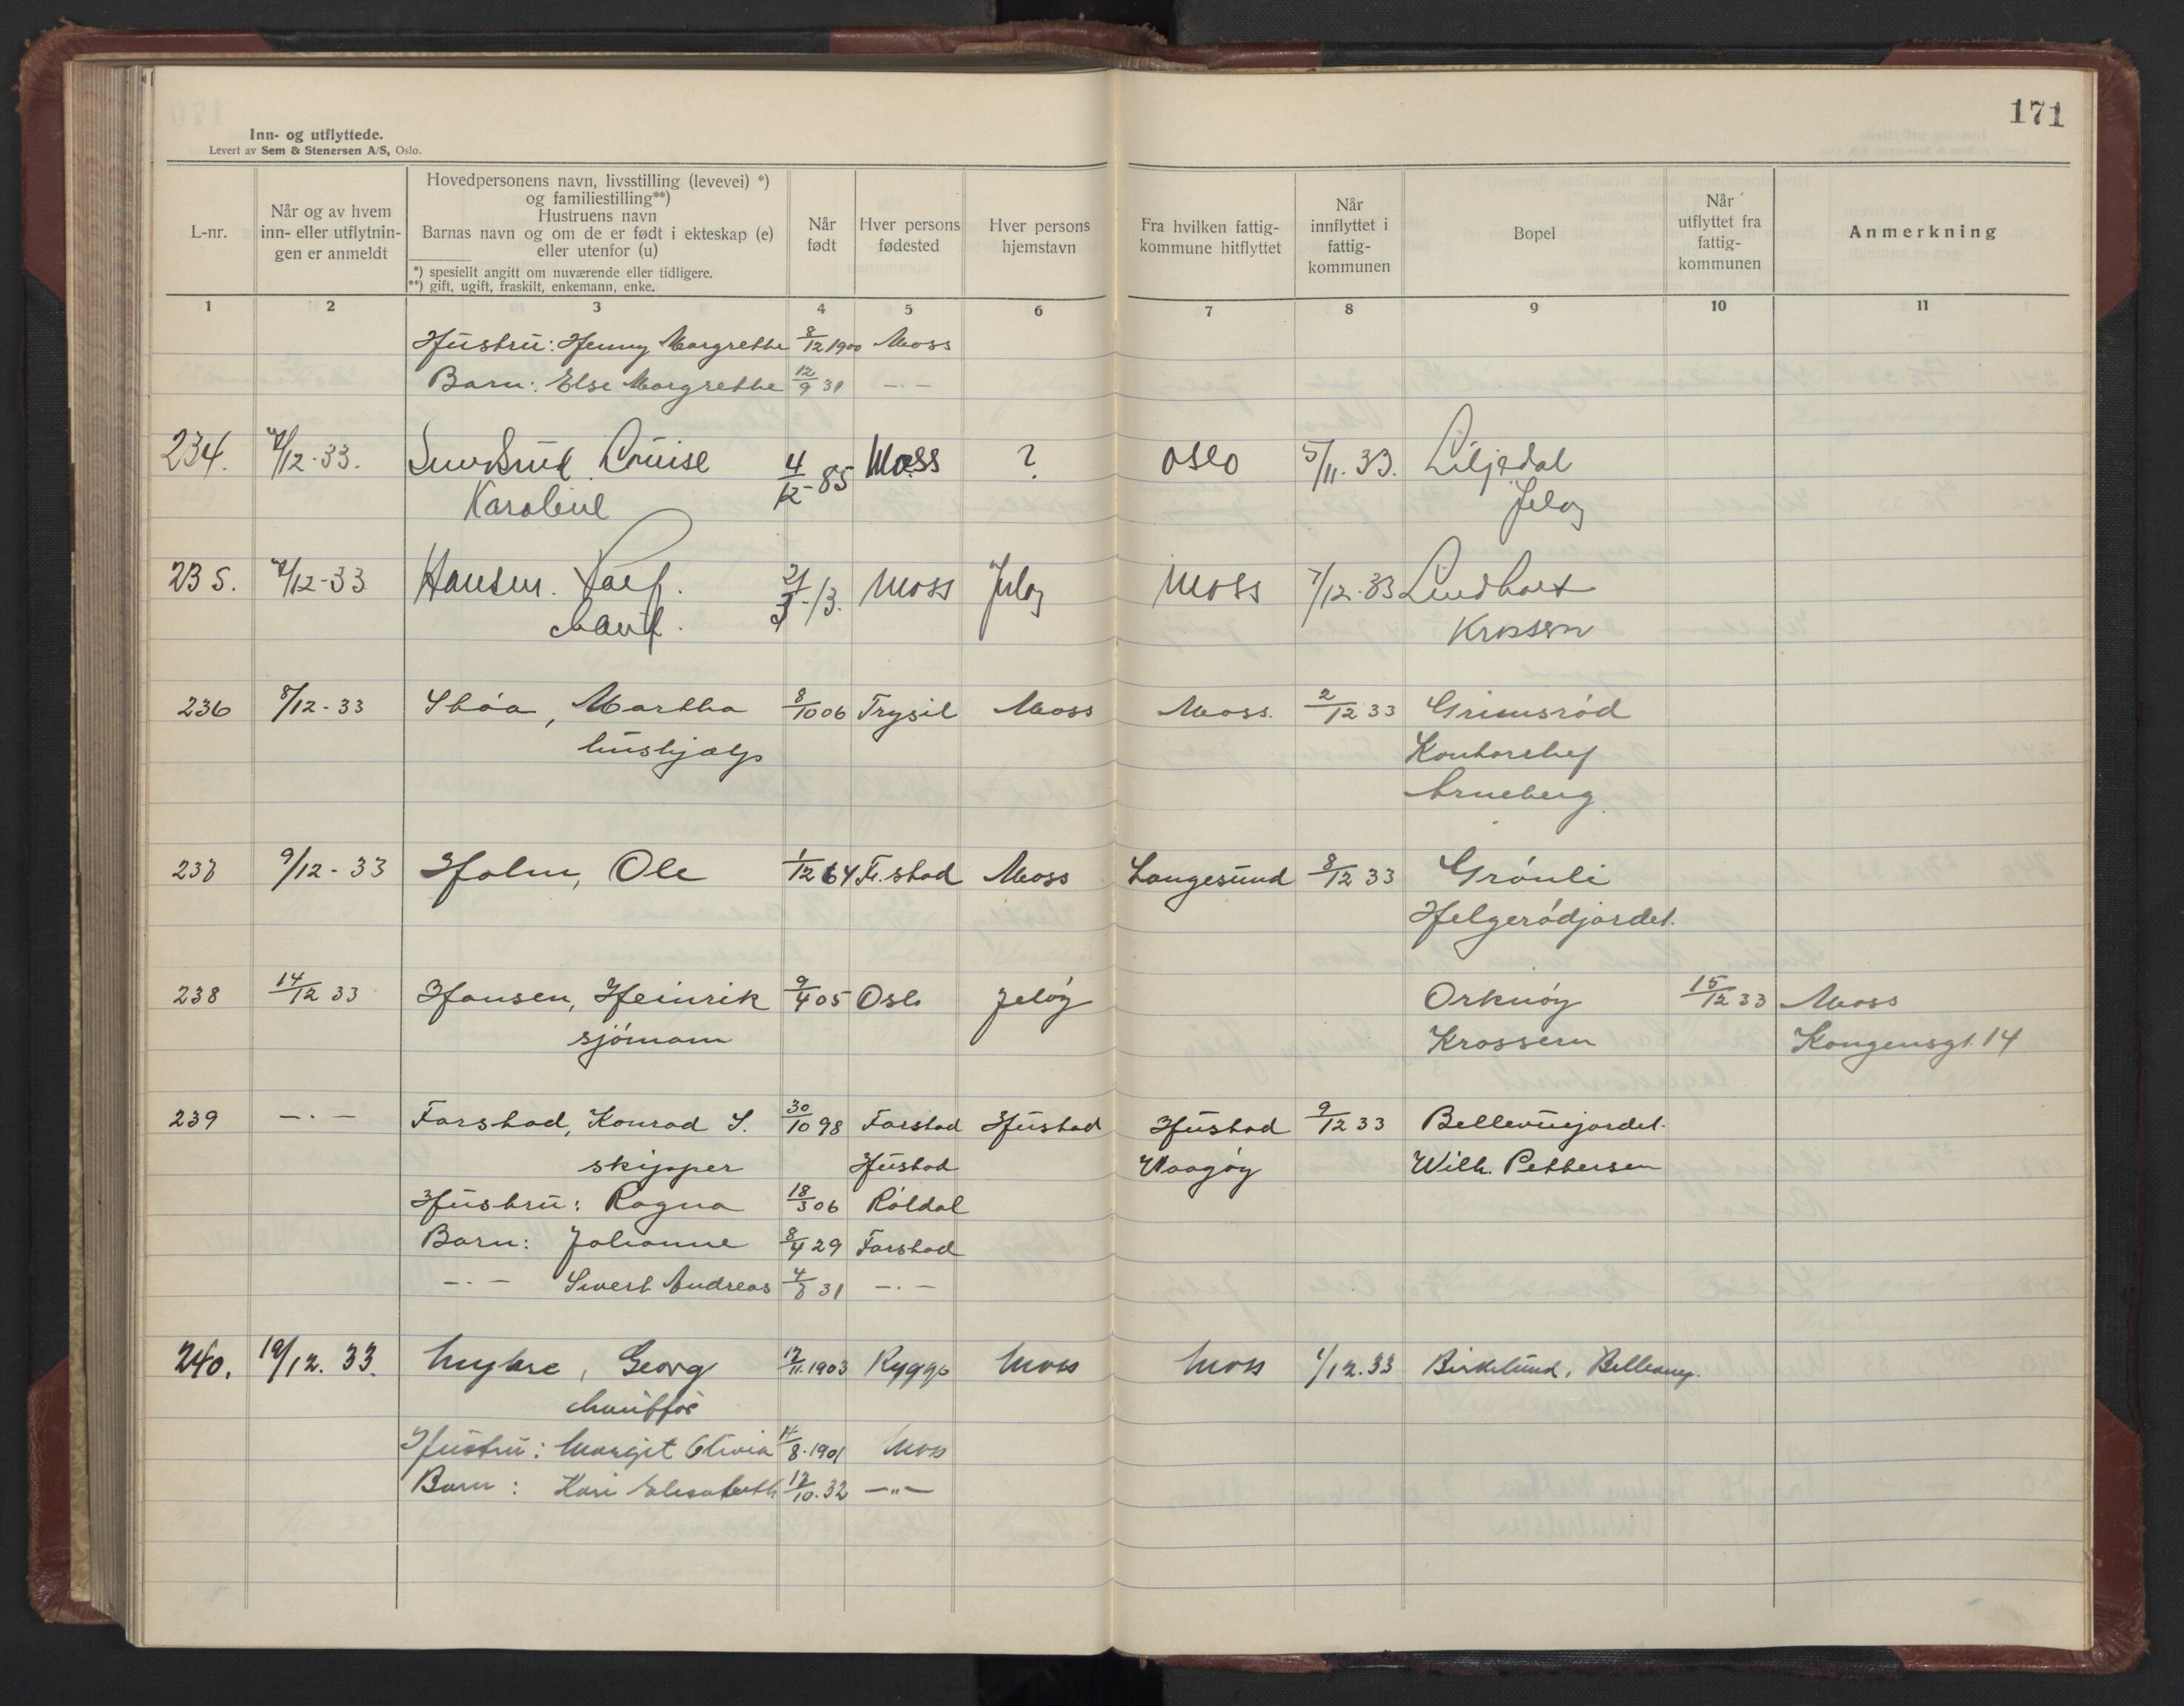 171
Inn- og utflyttede.
Levert av Sem & Stenersen A/S, Oslo.
L-nr.
Når og av hvem
inn- eller utflytnin-
gen er anmeldt
Hovedpersonens navn, livsstilling (levevei) *)
og familiestilling**)
Hustruens navn
Barnas navn og om de er født i ekteskap (e)
eller utenfor (u)
*) spesielt angitt om nuværende eller tidligere.
**) gift, ugift, fraskilt, enkemann, enke.
Når
født
Hver persons
fødested
Hver persons
hjemstavn
Fra hvilken fattig-
kommune hitflyttet
Når
innflyttet i
fattig-
kommunen
Bopel
Når
utflyttet fra
fattig-
kommunen
Anmerkning
1 2 3 4 5 6 7 8 9 10 11
Hustru: Henny Margrethe 8/12 1900 Moss
Barn: Else Margrethe 12/9 31 -.-
234. /12-33. Louise 4/12-85 Moss ? Oslo 5/11.33. Liljedal
Karoline Jeløy
235. /12-33 Hansen. 21/3-13. Moss Jeløy Moss 7/12.33 Lindholt
Krossern
236 8/12-33 Skóa, Martha 8/10 06 Trysil Moss Moss. 2/12 33 Grimsród
hushjælp Kontorchef
Arneberg.
237 9/12-33 Holm, Ole 1/12 64 Fr.stad Moss Langesund 8/12 33 Grónli
Helgeródjordet.
238 14/12 33 Hansen, Heinrik 9/4 05 Oslo Jelóy Orknóy 15/12 33 Moss
sjómann Krossern Kongensgt. 14
239 -.- Farstad, Konrad S. 30/10 98 Farstad Hustad Hustad 9/12 33 Bellevuejordet.
skipper Hustad Vaagóy Wilh. Pettersen
Hustru: Ragna 18/3 06 Róldal
Barn: Johanne 8/4 29 Farstad
-.- Sivert Andreas 4/8 31 -.-
240. 19/12. 33. Myhre, Georg 12/11.1903 Rygge Moss Moss 1/12.33 Birkelund,
Hustru: Margit Olivia /8.1901 Moss
Barn: Kari Elisabeth 12/10.32 -"-